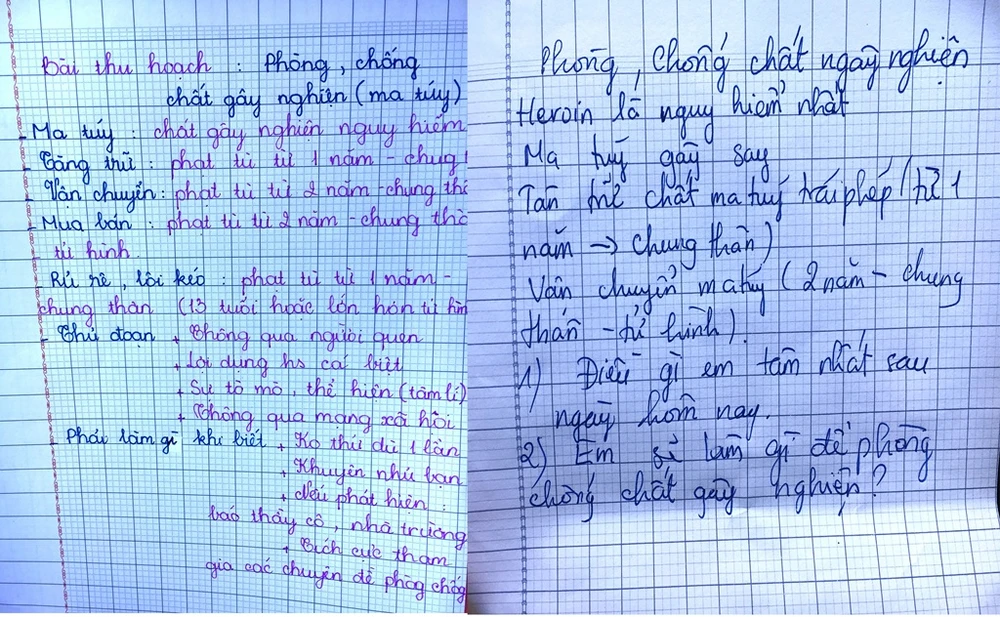 Bài thu hoạch : Phòng, chống
chất gây nghiện (ma túy)
- Ma túy : chất gây nghiện nguy hiểm
- Tàng trữ : phạt tù từ 1 năm - chug
- Vân chuyển : phạt tù từ 2 năm - chung thâ
- Mua bán : phạt tù từ 2 năm - chung thâ
tử hình.
Rủ rê, lôi kéo : phạt tù từ 1 năm -
chung thân (13 tuổi hoặc lớn hơn tử hìn
- Thủ đoạn + Thông qua người quen
+ Lợi dụng hs cá biệt
+ Sự tò mò, thể hiện (tâm lí)
+ Thông qua mạng xã hội
- Phải làm gì khi biết + Ko thử dù 1 lần
+ Khuyên nhủ bạn
+ Nếu phát hiện :
báo thầy cô, nhà trường
+ Tích cực tham
gia các chuyên đề phòg chốg
Phòng, chống chất ngây nghiện
Heroin là nguy hiểm nhất
Ma túy gây say
Tàn trữ chất ma túy trái phép (từ 1
năm → chung thân)
Vân chuyển ma túy (2 năm - chung
thân - tử hình).
1) Điều gì em tâm nhất sau
ngày hôm nay.
2) Em sẽ làm gì để phòng
chống chất gây nghiện?